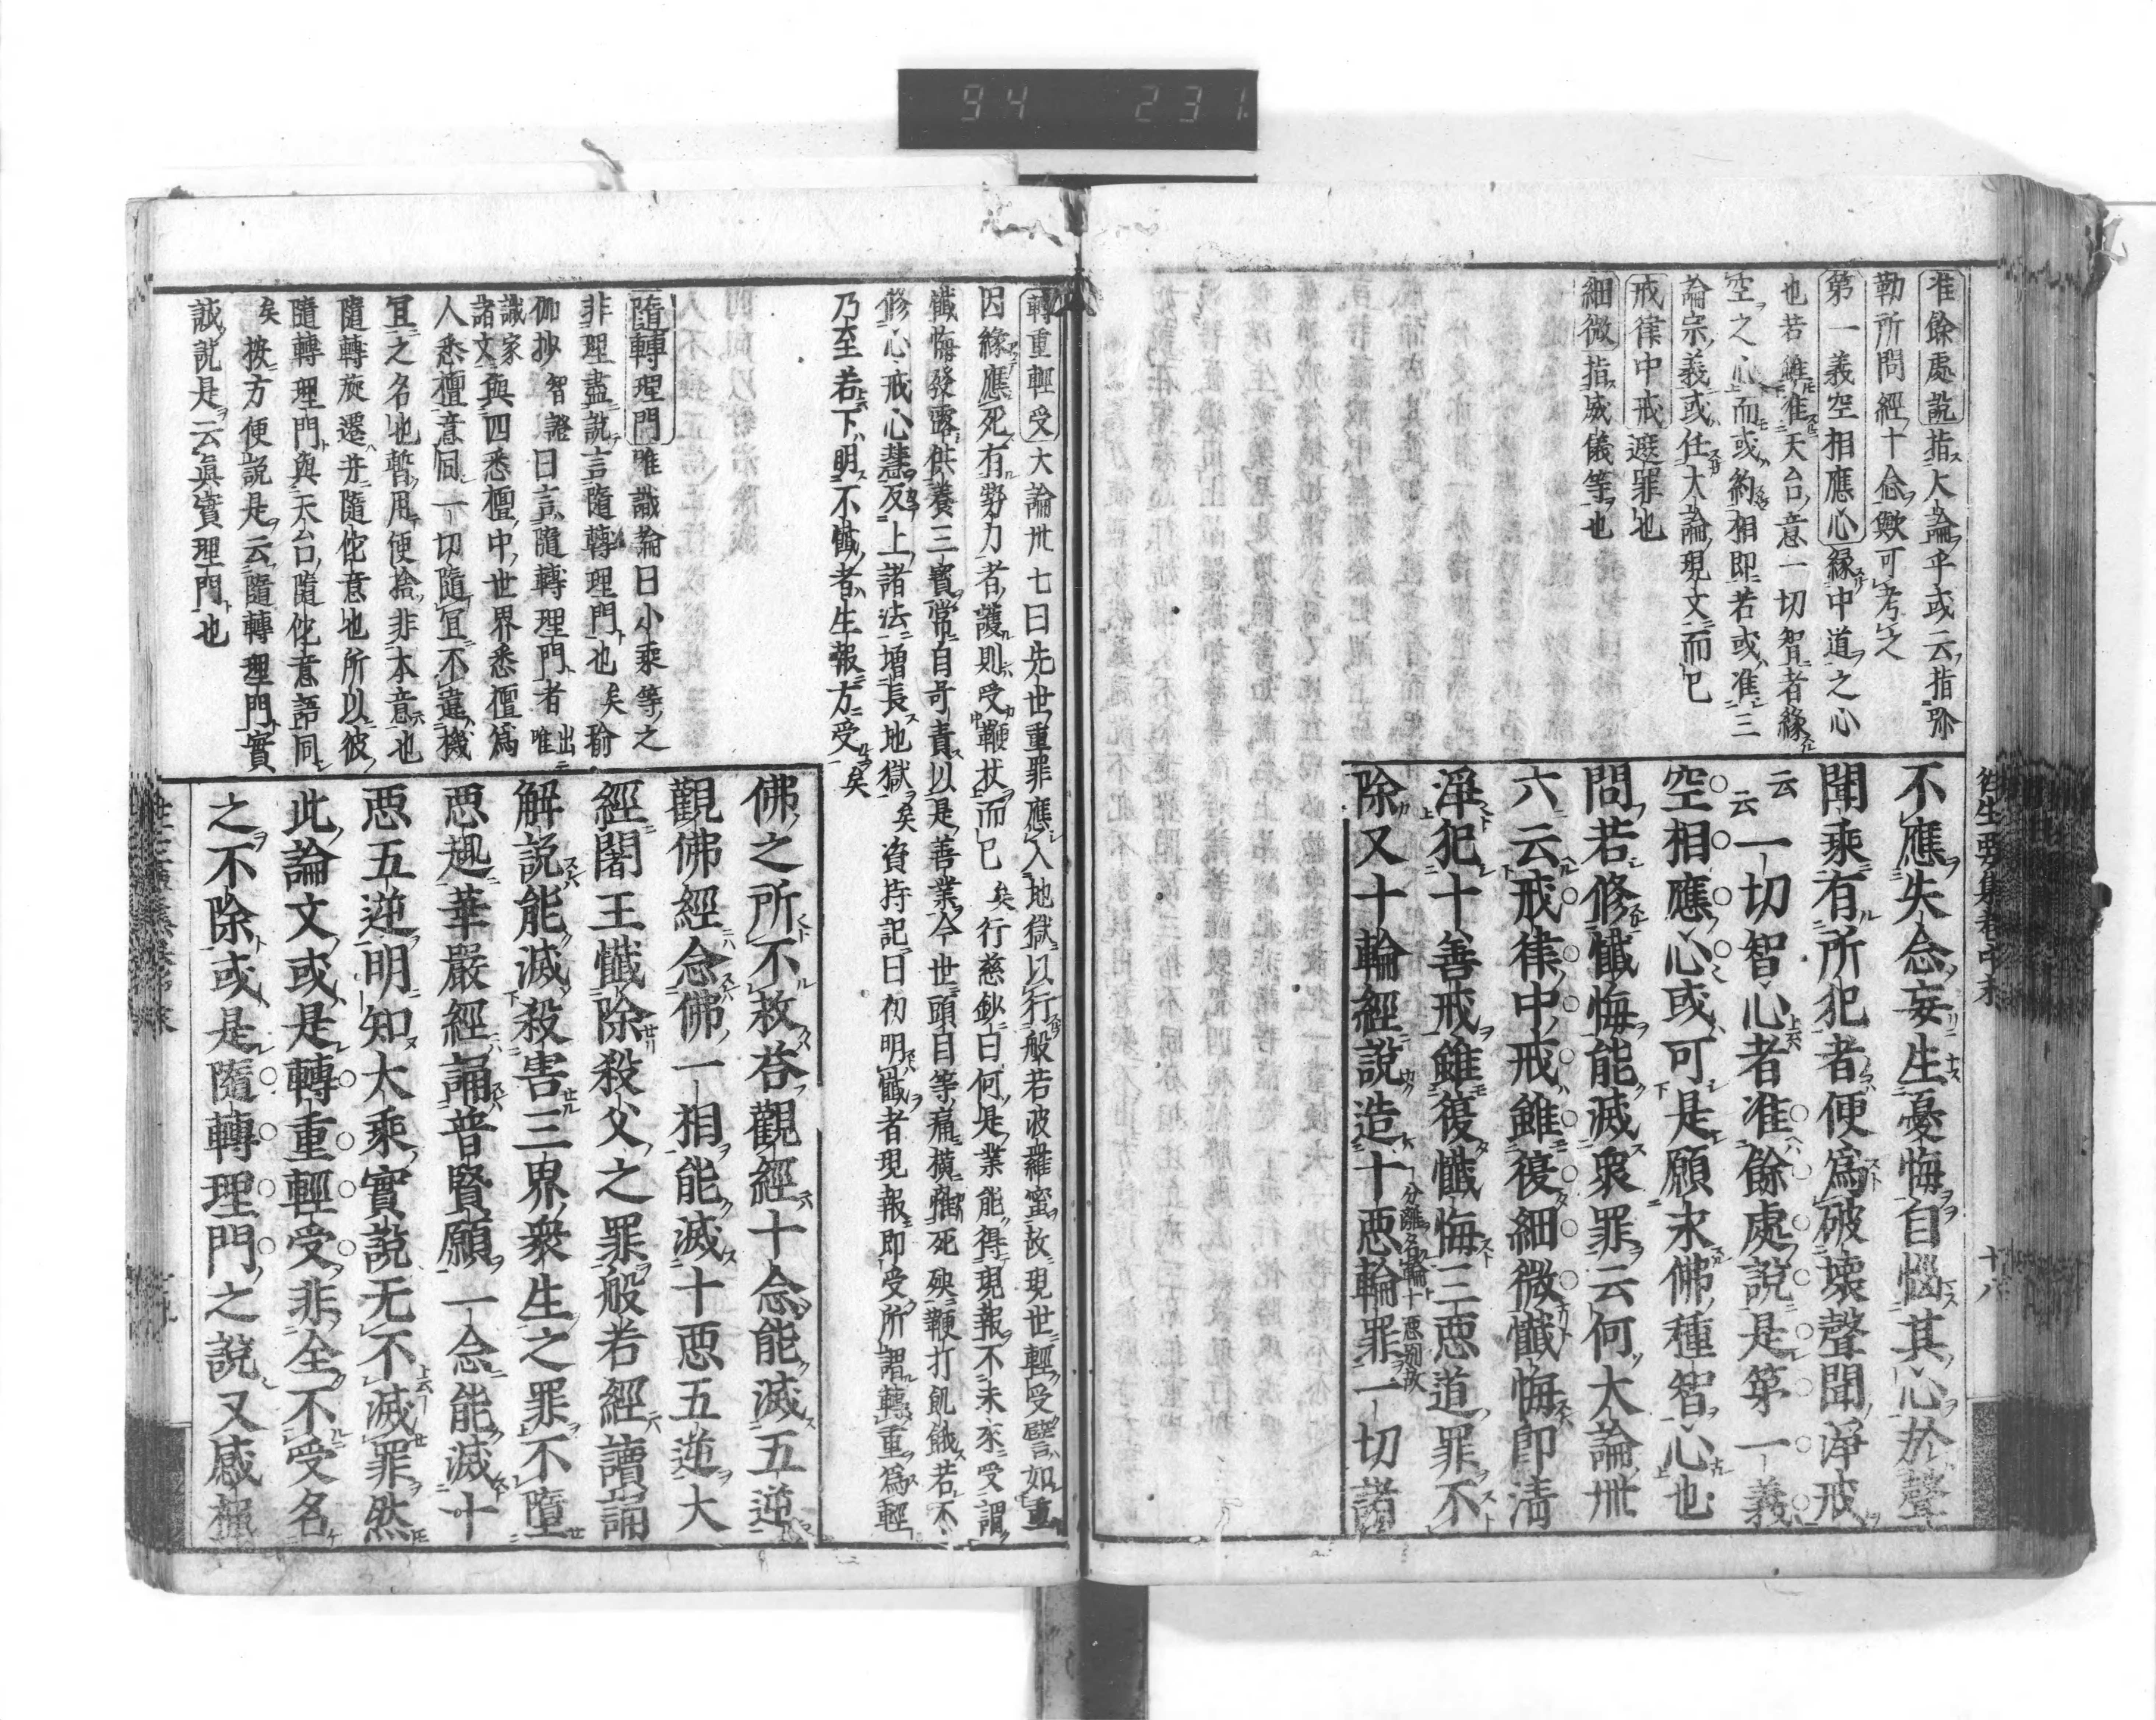 94 231
准餘處說指大論乎或云指弥
勒所問經十念歟可考之
第一義空相應心緣中道之心
也若雖准天台意一切智者緣
空之心而或約相即若或准三
論宗義或任大論現文而已
戒律中戒遮罪也
細微指威儀等也
不應失念妄生憂悔自惱其心於聲
聞乘有所犯者便爲破壞聲聞淨戒
云云一切智心者准餘處說是第一義
空相應心或可是願求佛種智心也
問若修懺悔能滅衆罪云何大論卌
六云戒律中戒雖復細微懺悔即淸
淨犯十善戒雖復懺悔三惡道罪不
除又十輪經說造十惡輪罪一切諸
分離名輪十惡別故
往生要集卷中末
十八
轉重輕受大論卅七曰先世重罪應入地獄以行般若波羅蜜故現世輕受譬如重
因緣應死有勢力者護則受鞭杖而已矣行慈鈔曰何是業能得現報不未來受謂
懺悔發露供養三寶常自呵責以是善業今世頭目等痛橫罹死殃鞭打飢餓若不
修心戒心慧反上諸法增長地獄矣資持記曰初明懺者現報即受所謂轉重爲輕
乃至若下明不懺者生報方受矣
隨轉理門唯識論曰小乘等之
非理盡說言隨轉理門也矣瑜
伽抄智證曰言隨轉理門者出唯
識家諸文與四悉檀中世界悉檀爲
人悉檀意同一切隨宜不違機
宜之名也暫用便捨非本意也
隨轉旋還并隨佗意也所以彼
隨轉理門與天台隨佗意語同
矣按方便說是云隨轉理門實
誠說是云眞實理門也
佛之所不救荅觀經十念能滅五逆
觀佛經念佛一相能滅十惡五逆大
經闍王懺除殺父之罪般若經讀誦
解說能滅殺害三界衆生之罪不墮
惡趣華嚴經誦普賢願一念能滅十
惡五逆明知大乘實說无不滅罪然
此論文或是轉重輕受非全不受名
之不除或是隨轉理門之說又感禪